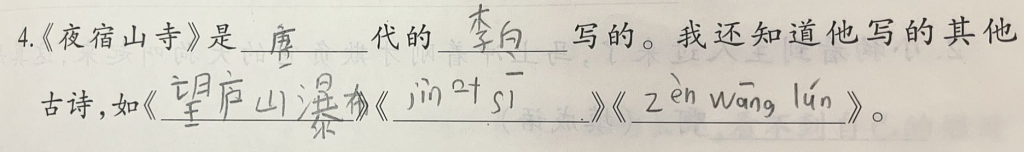 4.《夜宿山寺》是 唐 代的 李白 写的。我还知道他写的其他
古诗,如《望庐山瀑布》《jìn 叶 sī》《zèn wāng lún》。